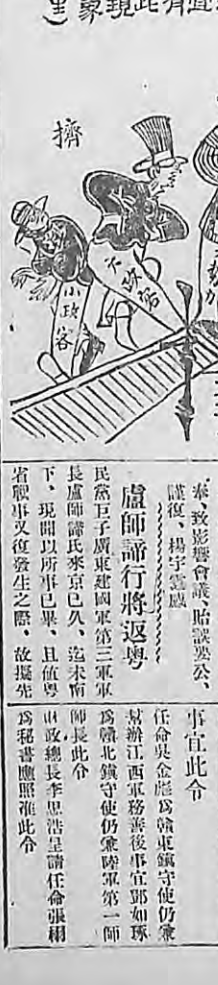 宜有此現象
擠
大政客
小政客
奉、致影響會議、貽誤要公、
謹復、楊宇霆感
盧師諦行將返粤
民黨巨子廣東建國軍第三軍軍
長盧師諦氏來京已久、迄未南
下、現聞以所事已畢、且值粤
省戰事又復發生之際、故擬先
事宜此令
任命吳金彪爲贛東鎭守使仍兼
幫辦江西軍務善後事宜鄧如琢
爲贛北鎭守使仍兼陸軍第一師
師長此令
財政總長李思浩呈請任命張
爲秘書應照准此令